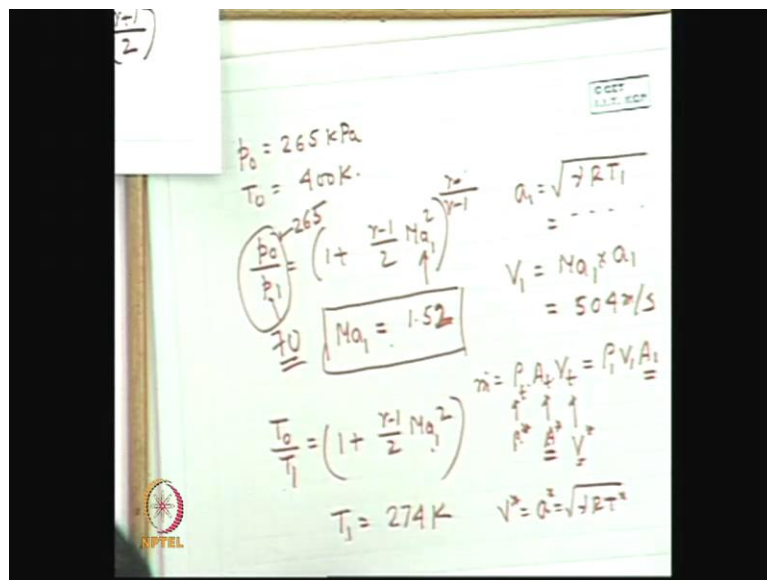 γ+1
2
CCET
I.I.T. KGP
p₀ = 265 kPa
T₀ = 400K.
265
p₀/p₁ = (1 + (γ-1)/2 Ma₁²)^(γ/(γ-1))
70
Ma₁ = 1.52
T₀/T₁ = (1 + (γ-1)/2 Ma₁²)
T₁ = 274 K
a₁ = √γRT₁
= - - - -
V₁ = Ma₁ × a₁
= 504 m/s
ṁ = ρₜ Aₜ Vₜ = ρ₁ V₁ A₁
ρ* A* V*
V* = a* = √γRT*
NPTEL